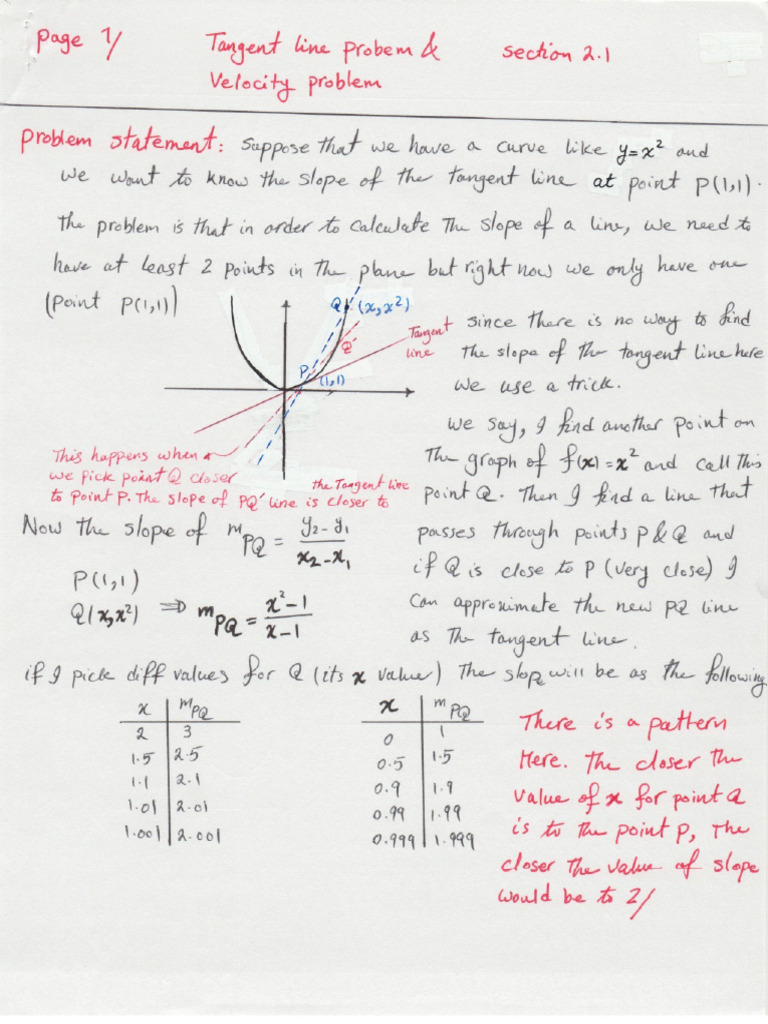 page 1/ Tangent line probem & section 2.1
Velocity problem
problem statement: suppose that we have a curve like y=x² and
we want to know the slope of the tangent line at point P(1,1).
The problem is that in order to calculate The slope of a line, we need to
have at least 2 points in the plane but right now we only have one
(point P(1,1))
Q (x,x²)
Q'
P
(1,1)
Tangent
line
since there is no way to find
the slope of the tangent line here
we use a trick.
we say, I find another point on
The graph of f(x)=x² and call this
point Q. Then I find a line that
passes through points P & Q and
if Q is close to P (very close) I
can approximate the new PQ line
as The tangent line.
This happens when
we pick point Q closer
to point P. The slope of PQ' line is closer to
the Tangent line
Now the slope of m_PQ = (y₂-y₁)/(x₂-x₁)
P(1,1)
Q(x,x²) ⇒ m_PQ = (x²-1)/(x-1)
if I pick diff values for Q (its x value) The slop will be as the following
x | m_PQ
2 | 3
1.5 | 2.5
1.1 | 2.1
1.01 | 2.01
1.001 | 2.001
x | m_PQ
0 | 1
0.5 | 1.5
0.9 | 1.9
0.99 | 1.99
0.999 | 1.999
There is a pattern
Here. The closer the
value of x for point Q
is to the point P, The
closer The value of slope
would be to 2/